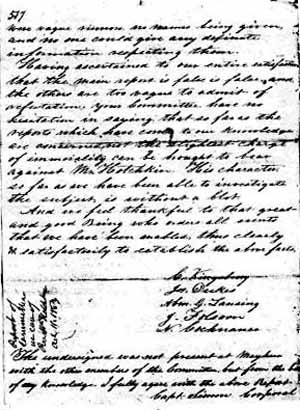 537
were vague rumors no names being given
and no one could give any definite
information respecting them.
Having ascertained to our entire satisfaction
that the main report is false is false, and
the others are too vague to admit of
refutation, your Committee have no
hesitation in saying, that so far as the
reports which have come to our knowledge
are concerned, not the slightest charge
of immorality can be brought to bear
against Mr. Hotchkin. His character
so far as we have been able to investigate
the subject, is without a blot.
And we feel thankful to that great
and good Being who orders all events
that we have been enabled, thus clearly
& satisfactorily to establish the above facts.
C. Kingsbury
Jos. Dukes
Abm. G. Lansing
J. Folsom
N. Cochnauer
Report of
Committee
in case of
The undersigned was not present at Mayhew
with the other members of the Committee, but from the best
of my knowledge I fully agree with the above Report.
Capt.